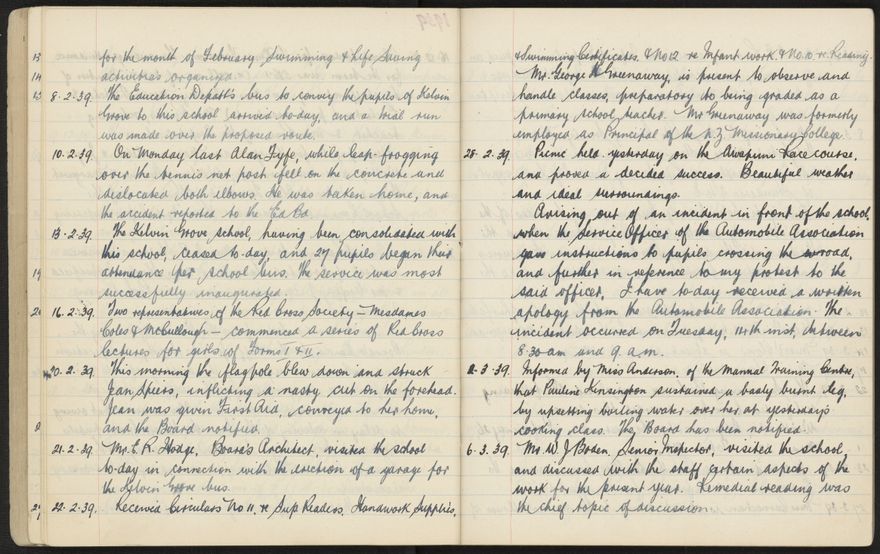 for the month of February. Swimming & Life Saving
activities organized.
8.2.39. The Education Depart's bus to convey the pupils of Kelvin
Grove to this school arrived to-day, and a trial run
was made over the proposed route.
10.2.39. On Monday last Alan Fyfe, while leap-frogging
over the tennis net post fell on the concrete and
dislocated both elbows. He was taken home, and
the accident reported to the Ed Bd.
13.2.39. The Kelvin Grove school, having been consolidated with
this school, ceased to-day, and 27 pupils began their
attendance per school bus. The service was most
successfully inaugurated.
16.2.39. Two representatives of the Red Cross Society – Mesdames
Coles & McCullough – commenced a series of Red Cross
lectures for girls of Forms I & II.
20.2.39. This morning the flagpole blew down and struck
Jean Spiers, inflicting a nasty cut on the forehead.
Jean was given First Aid, conveyed to her home,
and the Board notified.
21.2.39. Mr. E. R. Hodge, Board's Architect, visited the school
to-day in connection with the erection of a garage for
the Kelvin Grove bus.
22.2.39. Received Circulars No 11. re Sup Readers, Handwork Supplies,
& Swimming Certificates. & No 12 re Infant work & No. 10 re
Mr. George Greenaway, is present to observe and
handle classes, preparatory to being graded as a
primary school teacher. Mr Greenaway was formerly
employed as Principal of the N.Z Missionary College.
28.2.39. Picnic held yesterday on the Awapuni Racecourse,
and proved a decided success. Beautiful weather
and ideal surroundings.
Arising out of an incident in front of the school,
when the Service Officer of the Automobile Association
gave instructions to pupils crossing the road,
and further in reference to my protest to the
said officer, I have to-day received a written
apology from the Automobile Association. The
incident occurred on Tuesday, 14th inst, between
8.30 am and 9 a.m.
2.3.39. Informed by Miss Anderson, of the Manual Training Centre,
that Pauline Kinsington sustained a badly burnt leg,
by upsetting boiling water over her at yesterday's
cooking class. The Board has been notified.
6.3.39. Mr. W. J Boden, Senior Inspector, visited the school
and discussed with the staff certain aspects of the
work for the present year. Remedial reading was
the chief topic of discussion.